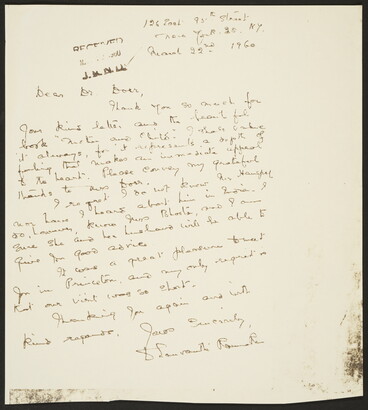 126 East 92nd Street
New York 28. N.Y.
March 22nd 1960
RECEIVED
Dear Dr Doer,
Thank you so much for
your kind letter and the beautiful
book "Mother and Child". I shall value
it always, for it represents a depth of
feeling that makes an immediate appeal
to the heart. Please convey my grateful
thanks to Mrs Doer.
I regret I do not know Mr
nor have I heard about him in India. I
do, however, know Mrs and I am
sure she and her husband will be able to
give good advice.
It was a great pleasure
for in Princeton, and my only regret is
that our visit was so short.
Thanking you again and with
kind regards.
Yours Sincerely,
Rama Rau